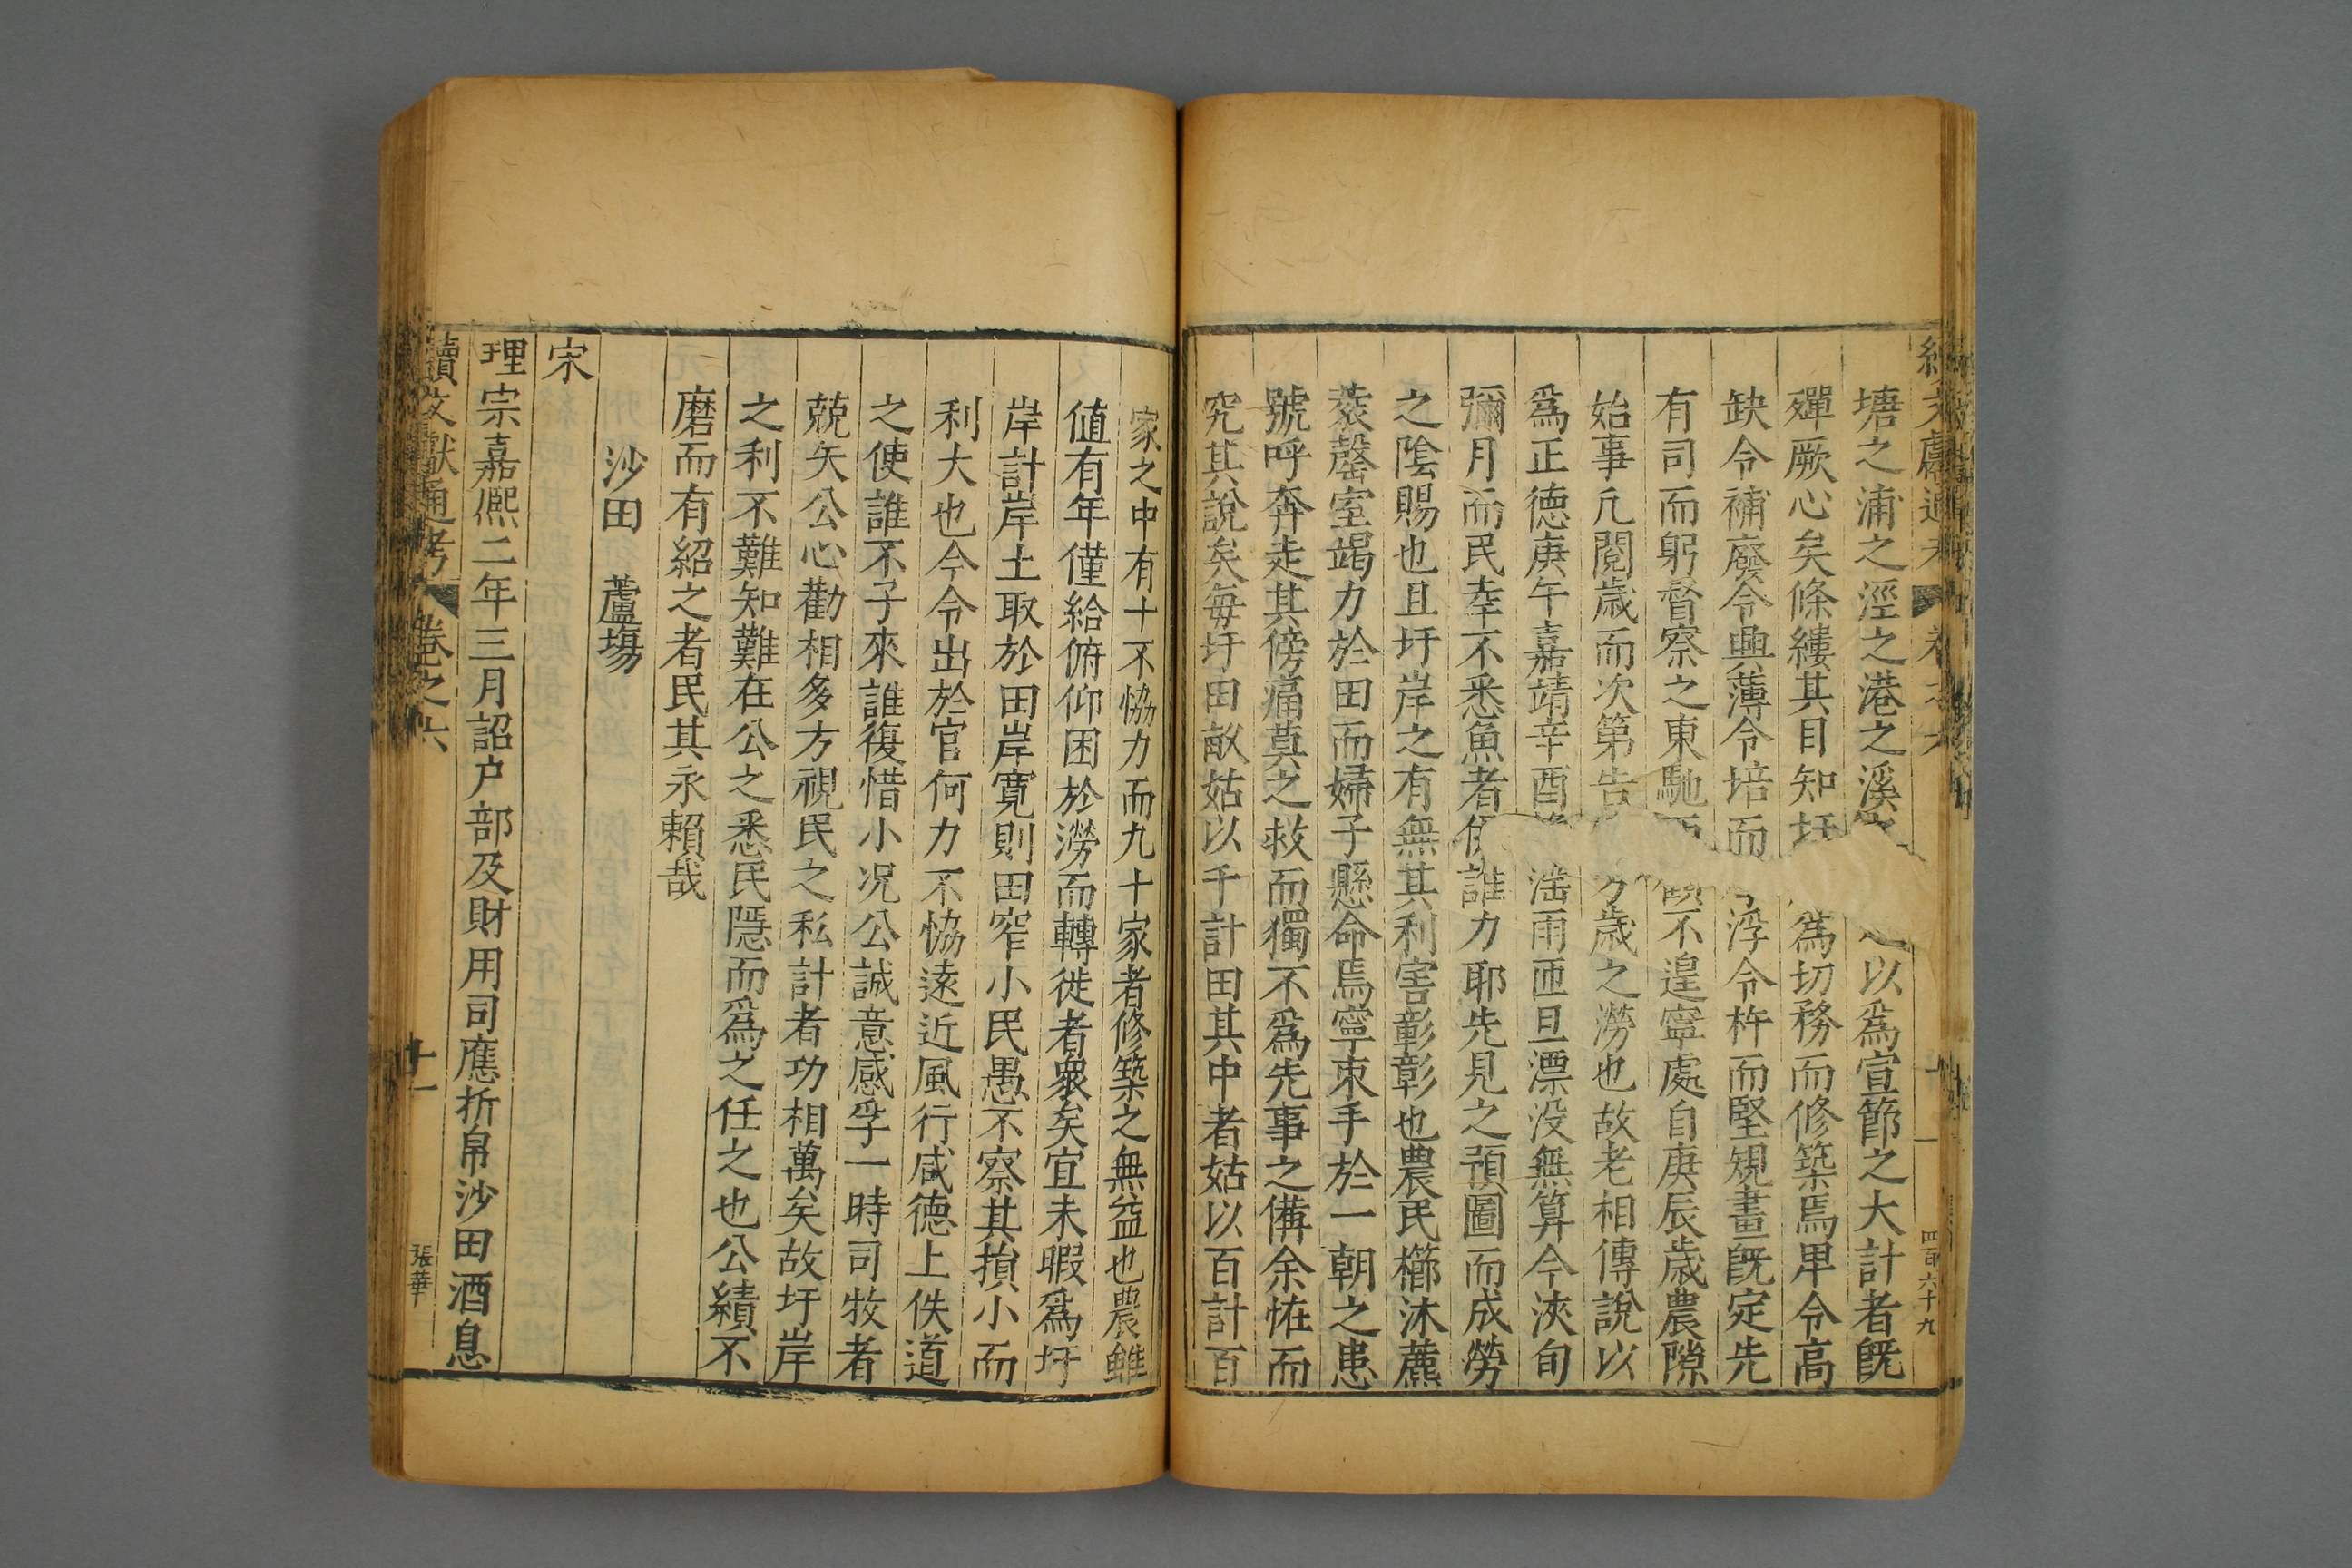 塘之浦之涇之港之溪以為宣節之大計者既
殫厥心矣條縷其目知圩為切務而修築焉卑令高
缺令補廢令興薄令培而浮令杵而堅規畫既定先
有司而躬督察之東馳不遑寧處自庚辰歲農隙
始事凢閱歲而次第告歲之澇也故老相傳說以
為正德庚午嘉靖辛酉滛雨匝旦漂没無算今浹旬
彌月而民幸不悉魚者誰力耶先見之預圖而成勞
之陰賜也且圩岸之有無其利害彰彰也農民櫛沐藨
蓘罄室竭力於田而婦子懸命焉寧束手於一朝之患
號呼奔走其傍痛莫之救而獨不為先事之備余恠而
究其說矣每圩田畝姑以千計田其中者姑以百計百
家之中有十不恊力而九十家者修築之無益也農雖
値有年僅給俯仰困於澇而轉徙者衆矣宜未暇為圩
岸計岸土取於田岸寛則田窄小民愚不察其損小而
利大也今令出於官何力不恊遠近風行咸德上佚道
之使誰不子來誰復惜小况公誠意感孚一時司牧者
兢矢公心勸相多方視民之私計者功相萬矣故圩岸
之利不難知難在公之悉民隱而為之任之也公績不
磨而有紹之者民其永賴哉
沙田　蘆場
宋
理宗嘉熈二年三月詔户部及財用司應折帛沙田酒息
續文獻通考　卷之六　十一　張華
四百六十九